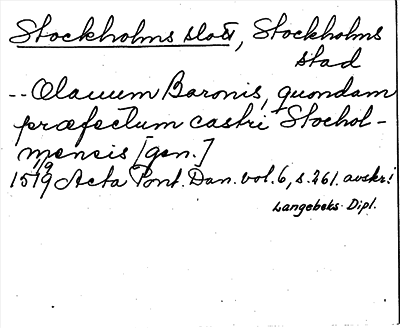 Stockholms slott, Stockholms
stad
-- Olauum Baronis, quondam
præfectum castri Stochol-
mensis [gen.]
1519 Acta Pont. Dan. vol. 6, s. 261. avskr. i
Langebeks Dipl.